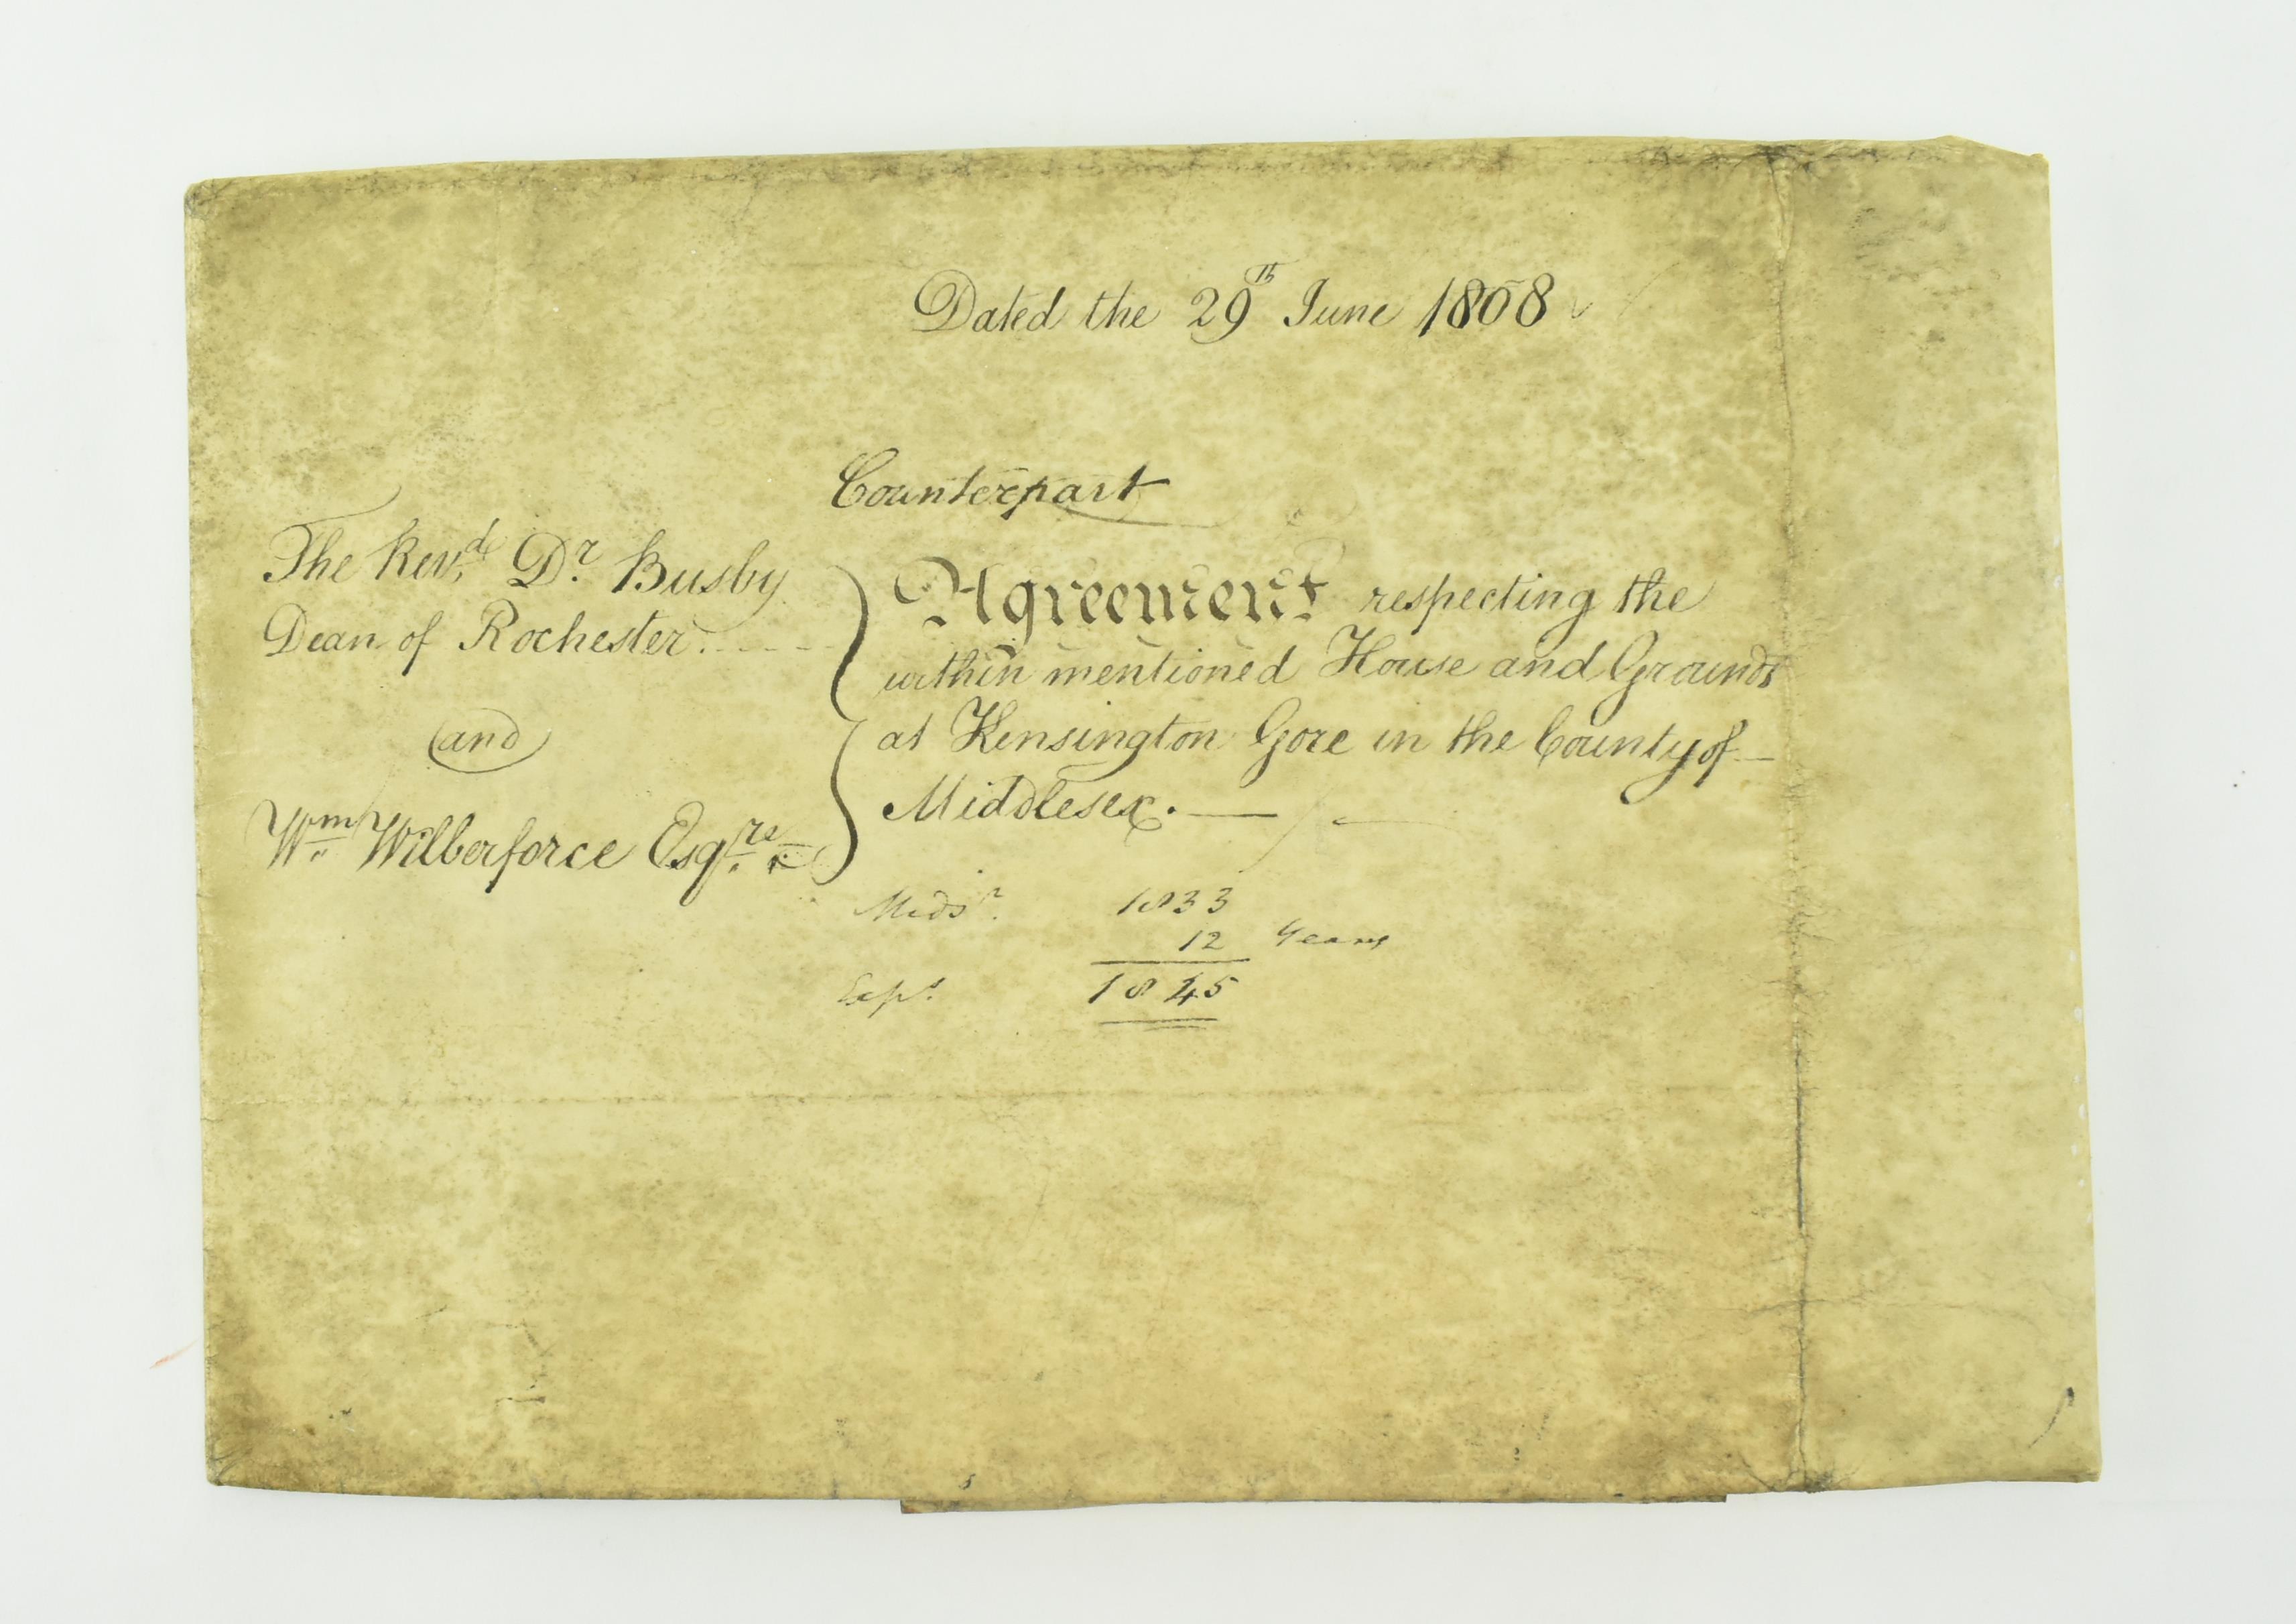 Dated the 29th June 1808
Counterpart
The Revd. Dr. Busby
Dean of Rochester.
and
Wm. Wilberforce Esqre.
Agreement respecting the
within mentioned House and Grounds
at Kensington Gore in the County of
Middlesex.
Midsr. 1833
12 Years
Exps. 1845